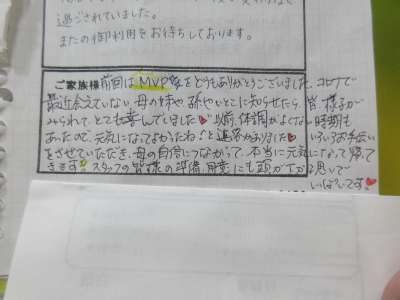 過ごされていました。
またの御利用をお待ちしております。
ご家族様 前回は MVP賞をどうもありがとうございました。コロナで
最近会えていない 母の妹や 孫やいとこに知らせたら 皆、様子が
みられて とても喜んでいました♥ 以前、体調がよくない時期も
あったので、元気になってよかったね♪と 返客がありました♥ いろいろお手伝い
をさせていただき、母の自信につながって、本当に元気になって帰って
きます スタッフの皆様の準備、用意にも頭が下がる思いで
いっぱいです♥